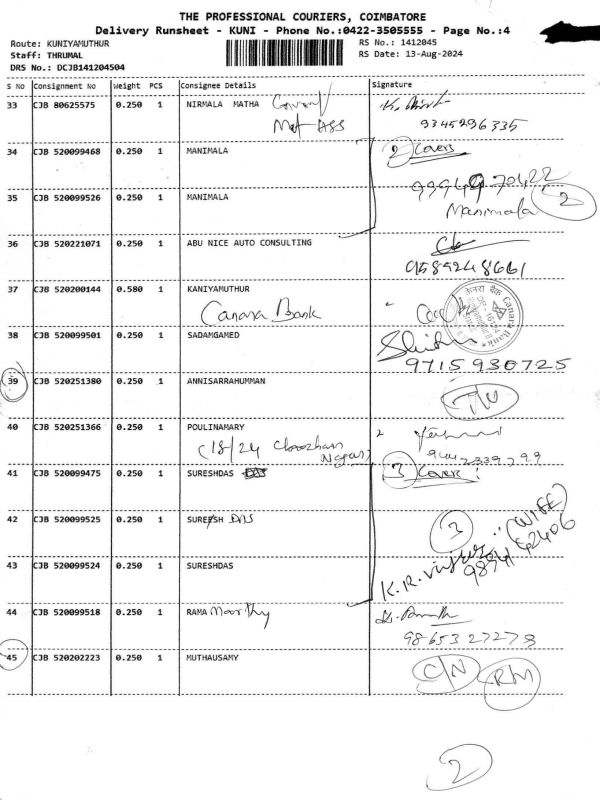 THE PROFESSIONAL COURIERS, COIMBATORE
Delivery Runsheet - KUNI - Phone No.:0422-3505555 - Page No.:4
Route: KUNIYAMUTHUR
RS No.: 1412045
Staff: THRUMAL
RS Date: 13-Aug-2024
DRS No.: DCJB141204504
S No Consignment No Weight PCS Consignee Details Signature
33 CJB 80625575 0.250 1 NIRMALA MATHA
9345296335
34 CJB 520099468 0.250 1 MANIMALA 2 Covers
35 CJB 520099526 0.250 1 MANIMALA
Manimala 2
36 CJB 520221071 0.250 1 ABU NICE AUTO CONSULTING
9589248661
37 CJB 520200144 0.580 1 KANIYAMUTHUR
Canara Bank
केनरा बैंक Canara Bank
38 CJB 520099501 0.250 1 SADAMGAMED
9715930725
39 CJB 520251380 0.250 1 ANNISARRAHUMMAN
40 CJB 520251366 0.250 1 POULINAMARY
(18/24 Nagar)
41 CJB 520099475 0.250 1 SURESHDAS 3 Covers
42 CJB 520099525 0.250 1 SURESH DAS 3
(WIFE)
43 CJB 520099524 0.250 1 SURESHDAS K.R.
44 CJB 520099518 0.250 1 RAMA Moorthy
98653 27278
45 CJB 520202223 0.250 1 MUTHUSAMY C/N RM
2